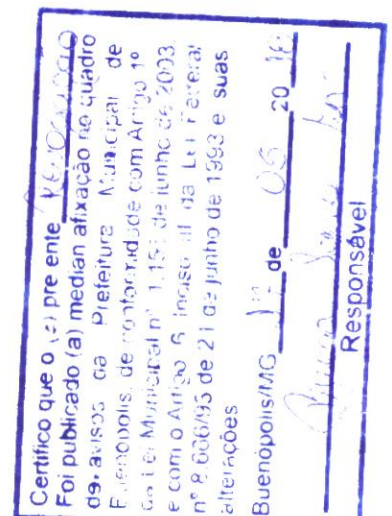 Certifico que o (a) pre ente
Foi publicado (a) median afixação no quadro
de avisos da Prefeitura Municipal de
Buenópolis, de conformidade com Artigo 1º
da Lei Municipal nº 1.151 de junho de 2003.
e com o Artigo 6 Inciso III da Lei Federal
nº 8.666/93 de 21 de junho de 1993 e suas
alterações
Buenópolis/MG de 06 20 16
Responsável